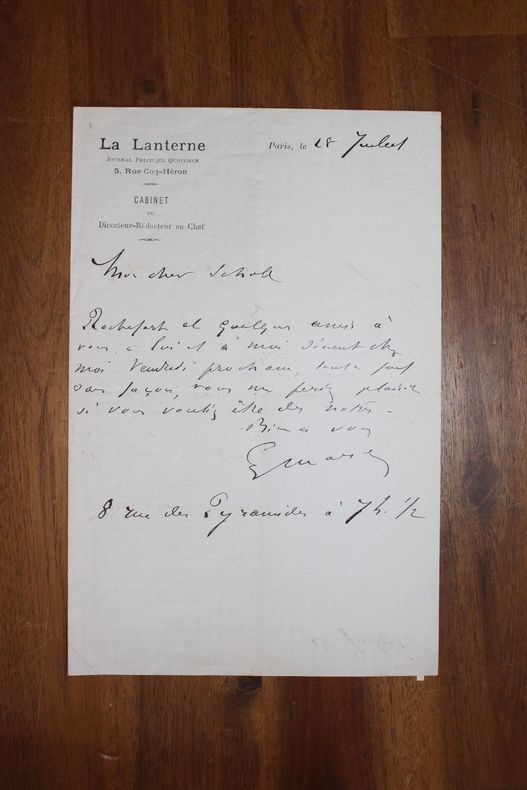 La Lanterne
Journal Politique Quotidien
5, Rue Coq-Héron
CABINET
DU
Directeur-Rédacteur en Chef
Paris, le 28 Juillet
Mon cher Scholl
Rochefort et quelques amis à
vous, à lui et à moi dinent chez
moi Vendredi prochain, toute fait
sans façon, vous me ferez plaisir
si vous voulez être des notres -
Bien à vous
8 rue des Pyramides à 7h. 1/2